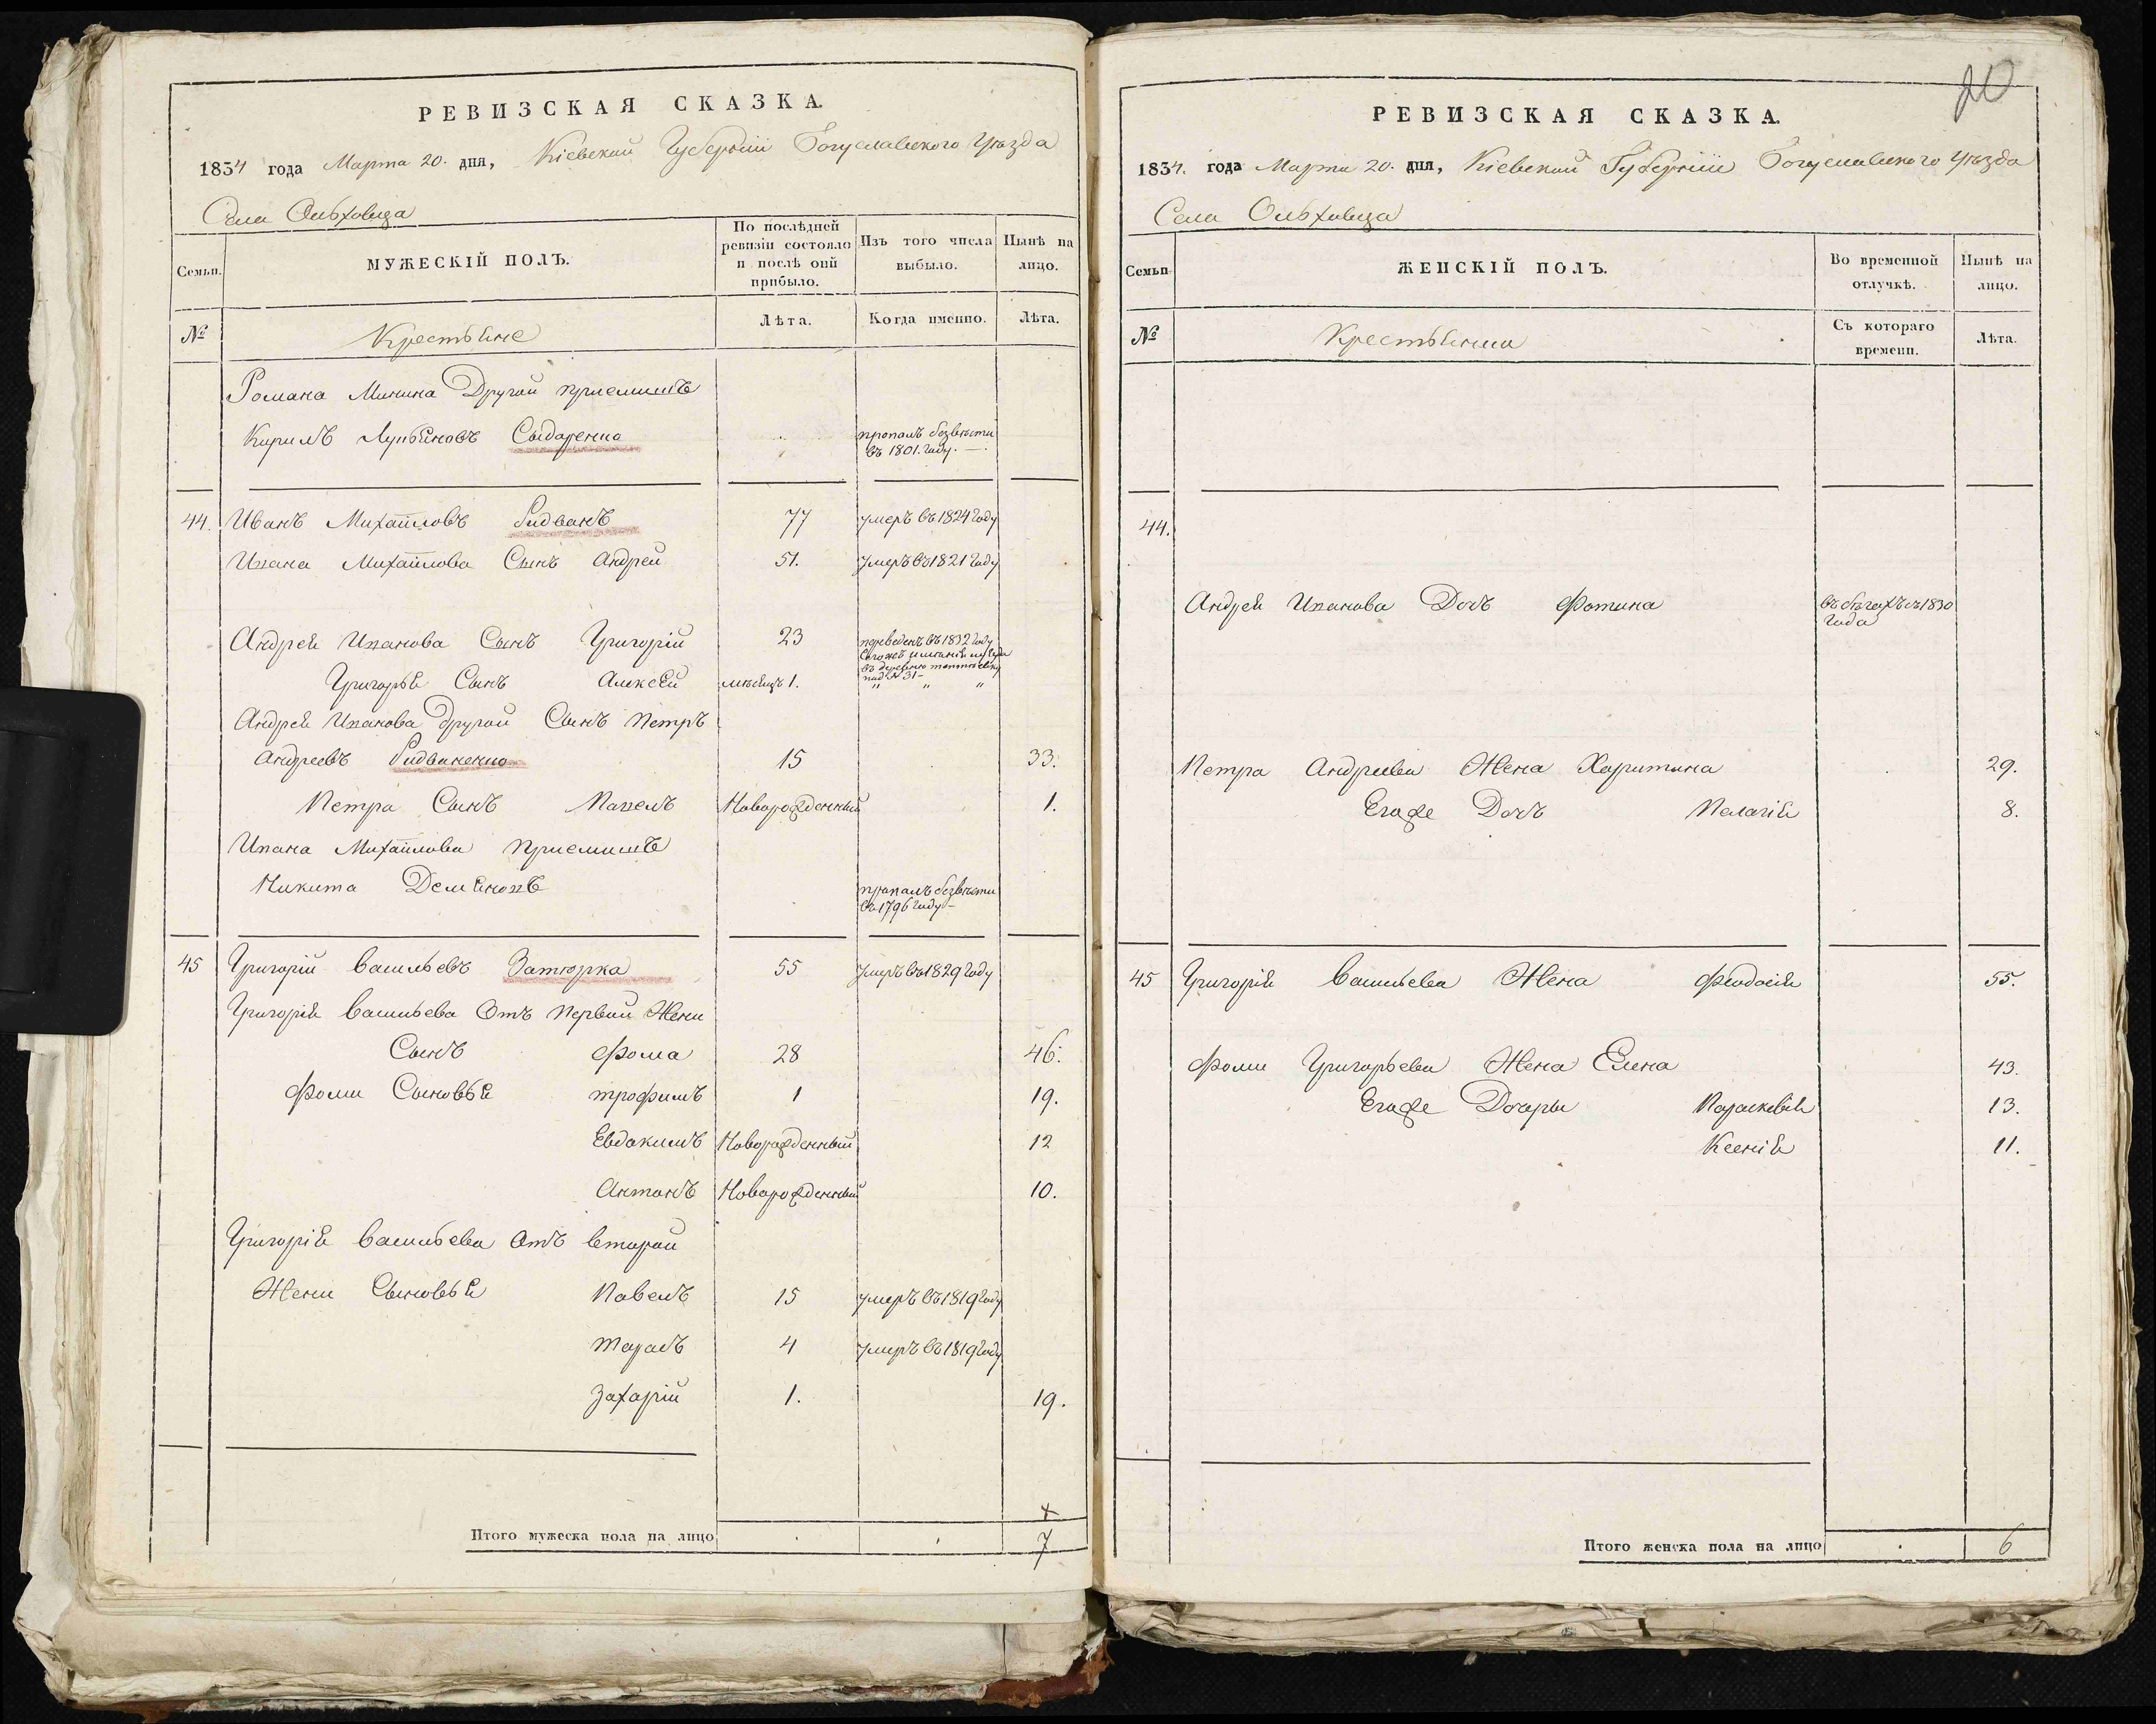 РЕВИЗСКАЯ СКАЗКА.
1834 года Марта 20. дня, Кіевской Губерніи Богуславского Уѣзда
Села Ольховца
Семьи.
МУЖЕСКІЙ ПОЛЪ.
По послѣдней ревизіи состояло и послѣ оной прибыло.
Изъ того числа выбыло.
Нынѣ на лицо.
№
Крестьяне
Лѣта.
Когда именно.
Лѣта.
Романа Минина Другой приемишъ
Кирилъ Лукьяновъ Сыдаренко пропалъ безвѣсти
въ 1801. году. —.
44. Иванъ Михайловъ Ридванъ 77 умеръ въ 1824 году
Ивана Михайлова Сынъ Андрей 51. умеръ въ 1821 году
Андрея Иванова Сынъ Григорій 23 переведенъ въ 1832 году
въ деревню
под № 31 –
Григорья Сынъ Алексѣй мѣсяцъ 1. " " "
Андрея Иванова другой Сынъ Петръ
Андреевъ Ридваненко 15 33.
Петра Сынъ Павелъ Новорожденный 1.
Ивана Михайлова приемишъ
Никита Демяновъ пропалъ безвѣсти
въ 1796 году –
45 Григорій Васильевъ Затюрка 55 умеръ въ 1829 году
Григорія Васильева Отъ Первой Жени
Сынъ Фома 28 46.
Фоми Сыновья Трофимъ 1 19.
Евдокимъ Новорожденный 12
Антонъ Новорожденный 10.
Григорія Васильева Отъ второй
Жени Сыновья Павелъ 15 умеръ въ 1819 году
Тарасъ 4 умеръ въ 1819 году
Захарій 1. 19.
Итого мужеска пола на лицо 7
20
РЕВИЗСКАЯ СКАЗКА.
1834. года Марта 20. дня, Кіевской Губерніи Богуславского Уѣзда
Села Ольховца
Семьи
ЖЕНСКІЙ ПОЛЪ.
Во временной отлучкѣ.
Нынѣ на лицо.
№
Крестьянки
Съ котораго времени.
Лѣта.
44.
Андрея Иванова Дочь Фотина въ бѣгахъ съ 1830
года
Петра Андреева Жена Харитина 29.
Егоже Дочь Пелагія 8.
45 Григорія Васильева Жена Феодосія 55.
Фоми Григорьева Жена Елена 43.
Егоже Дочеры Параскевія 13.
Ксенія 11.
Итого женска пола на лицо 6